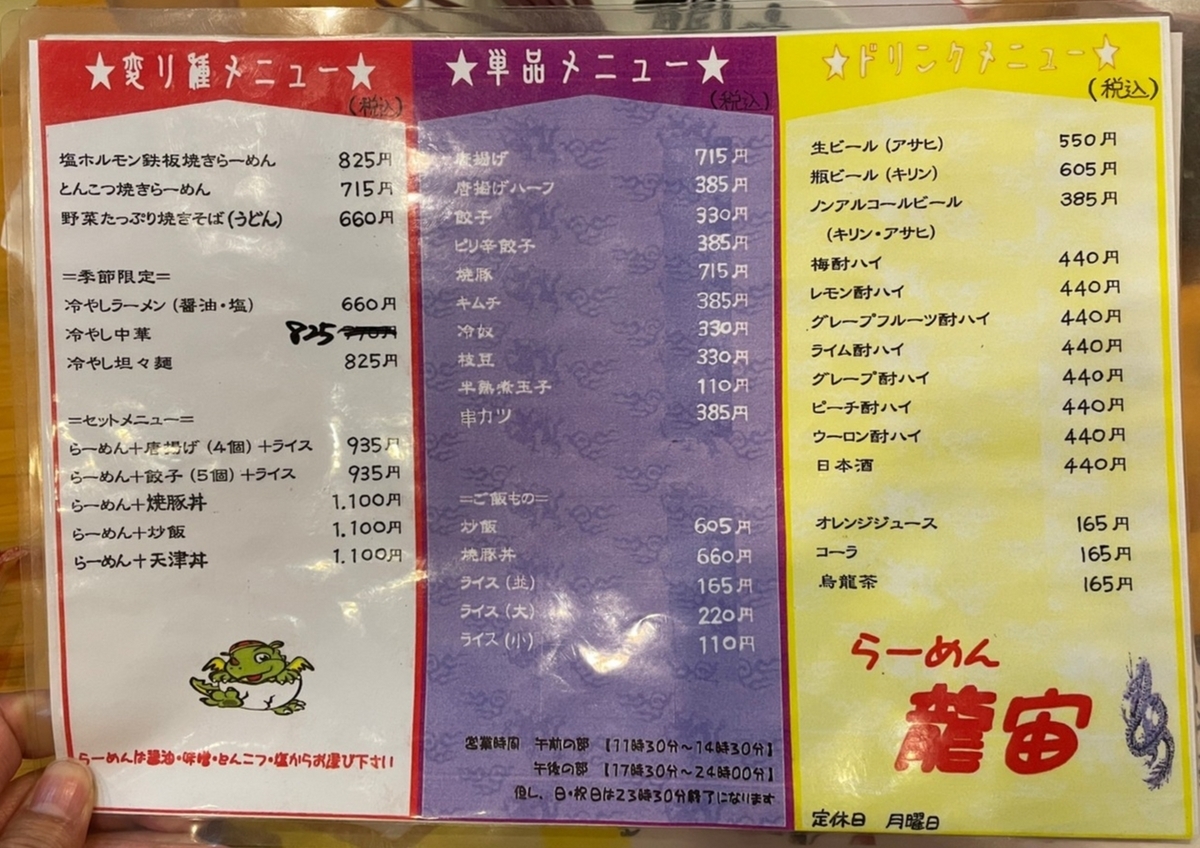 ★変り種メニュー★
(税込)
塩ホルモン鉄板焼きらーめん 825円
とんこつ焼きらーめん 715円
野菜たっぷり焼きそば(うどん) 660円
=季節限定=
冷やしラーメン (醤油・塩) 660円
冷やし中華 825
冷やし坦々麺 825円
=セットメニュー=
らーめん+唐揚げ (4個) +ライス 935円
らーめん+餃子 (5個) +ライス 935円
らーめん+焼豚丼 1.100円
らーめん+炒飯 1.100円
らーめん+天津丼 1.100円
らーめんは醤油・味噌・とんこつ・塩からお選び下さい
★単品メニュー★
(税込)
唐揚げ 715円
唐揚げハーフ 385円
餃子 330円
ピリ辛餃子 385円
焼豚 715円
キムチ 385円
冷奴 330円
枝豆 330円
半熟煮玉子 110円
串カツ 385円
=ご飯もの=
炒飯 605円
焼豚丼 660円
ライス (並) 165円
ライス (大) 220円
ライス (小) 110円
営業時間 午前の部 【11時30分~14時30分】
午後の部 【17時30分~24時00分】
但し、日・祝日は23時30分終了になります
★ドリンクメニュー★
(税込)
生ビール (アサヒ) 550円
瓶ビール (キリン) 605円
ノンアルコールビール 385円
(キリン・アサヒ)
梅酎ハイ 440円
レモン酎ハイ 440円
グレープフルーツ酎ハイ 440円
ライム酎ハイ 440円
グレープ酎ハイ 440円
ピーチ酎ハイ 440円
ウーロン酎ハイ 440円
日本酒 440円
オレンジジュース 165円
コーラ 165円
烏龍茶 165円
らーめん
龍宙
定休日 月曜日